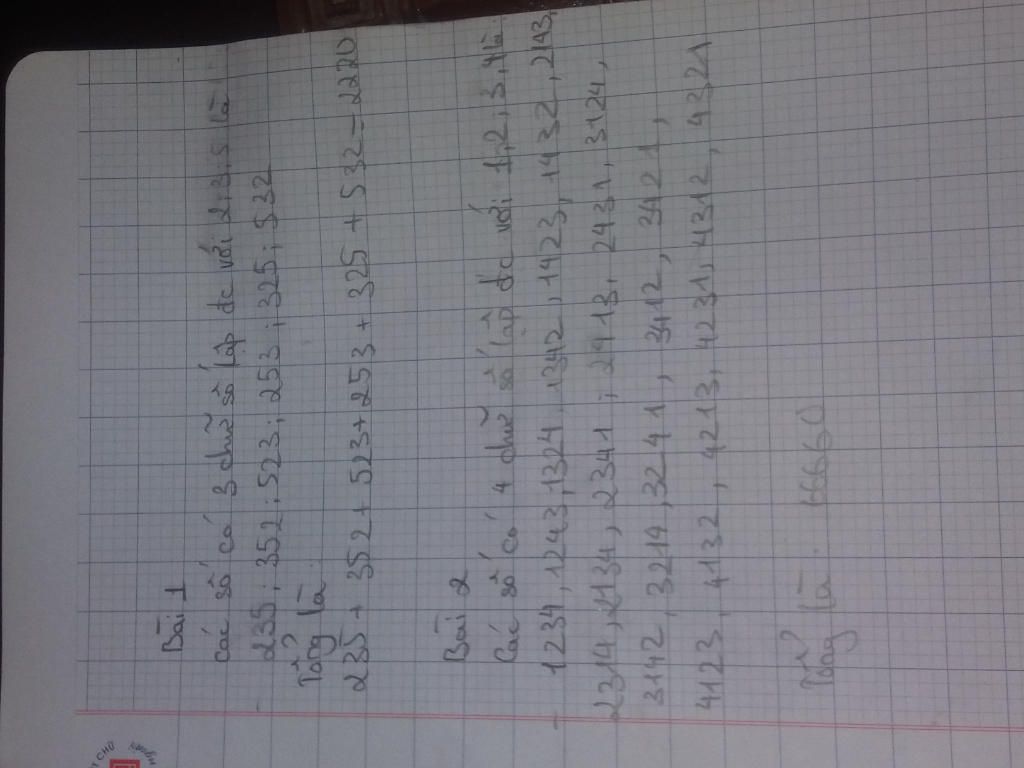 Bài 1
Các số có 3 chữ số lập đc với 2,3,5 là:
- 235; 352; 523; 253; 325; 532
Tổng là
235 + 352 + 523 + 253 + 325 + 532 = 2220
Bài 2
Các số có 4 chữ số lập đc với 1,2,3,4 là:
- 1234, 1243, 1324, 1342, 1423, 1432, 2143,
2314, 2134, 2341, 2413, 2431, 3124,
3142, 3214, 3241, 3412, 3421,
4123, 4132, 4213, 4231, 4312, 4321
Tổng là: 66660